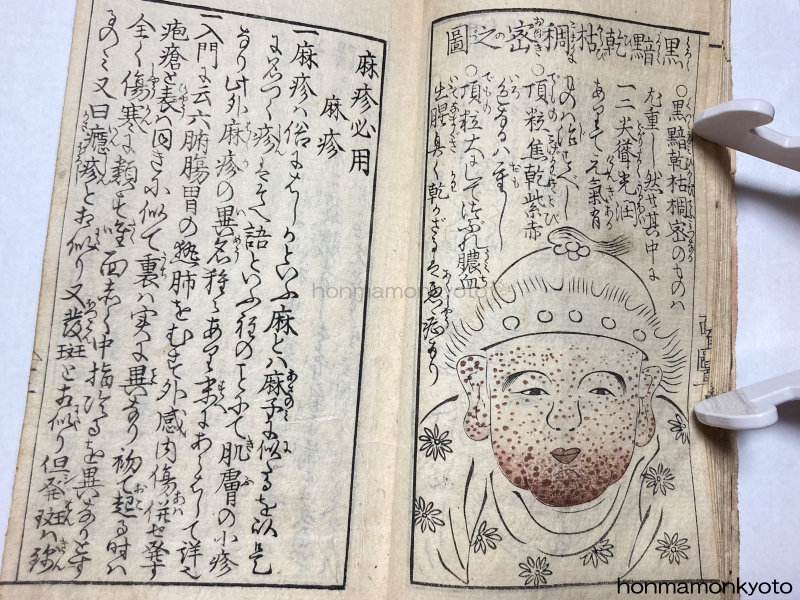 黒黯乾枯稠密之圖
○黒黯乾枯稠密のものハ
尤重し然共其中に
一二尖聳光潤
ありて元氣有
ものハ治すべし
○頂粒焦乾紫赤
色なるハ重し
○頂粒大にしてつぶれ膿血
生腥臭く乾かざるは悪症なり
麻疹必用
麻疹
一麻疹ハ俗にはしかといふ麻とハ麻子に似たるを以是
に名つく疹はそへ語といふ程のことにて肌膚の小疹
なり此外麻疹の異名種々あり末にあらはして詳也
一入門に云六腑腸胃の熱肺をむす外感内傷并せ發す
疱瘡と表ハ同き小似て裏ハ実に異なり初て起る時ハ
全く傷寒に類す 面赤く中指冷るを異なりとす
るのミ又曰癮疹と 似り又發斑と 似り但発斑ハ
honmamonkyoto
honmamonkyoto